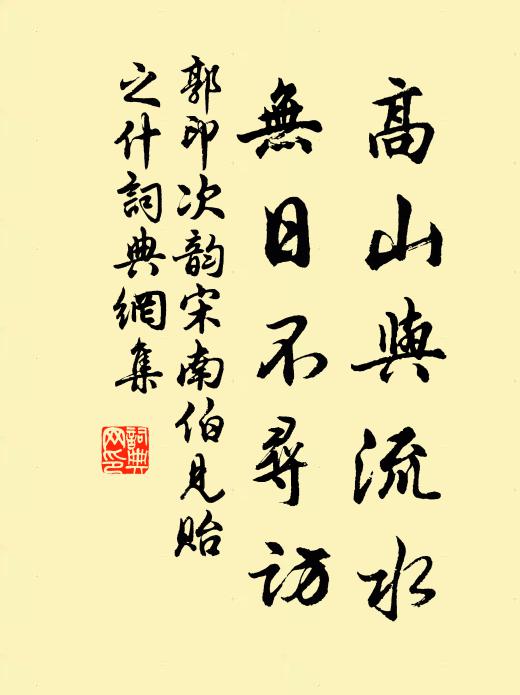 高山與流水
無日不尋訪
郭印次韵宋南伯見貽
之什詞典網集
詞典
网印